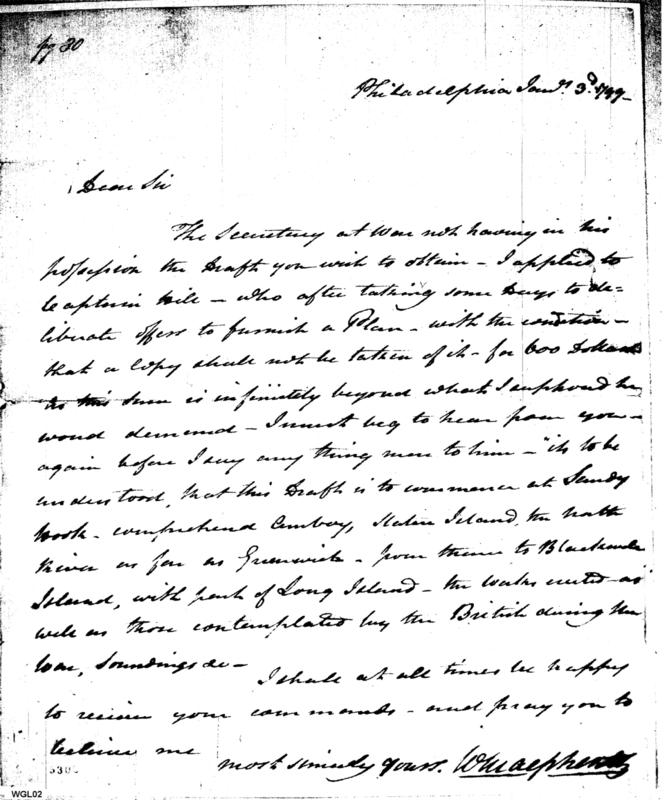 pg 30
Philadelphia Jany. 3d. 1799-
Dear Sir
The Secretary at War not having in his
possession the Draft you wish to obtain - I applied to
Captain Hill - who after taking some Days to de=
liberate offers to furnish a Plan - with the condition -
that a Copy shall not be taken of it - for 600 Dollars
As this sum is infinitely beyond what I supposed he
would demand - I must beg to hear from you -
again before I say any thing more to him - "its to be
understood, that this Draft is to commence at Sandy
Hook - comprehend Amboy, Staten Island, the North
River as far as Greenwich - from thence to Blackwells
Island, with part of Long Island - the works erected - as
well as those contemplated by the British during the
War, Soundings &c -
I shall at all times be happy
to receive your commands - and pray you to
believe me
most sincerely yours.
530
WGL02